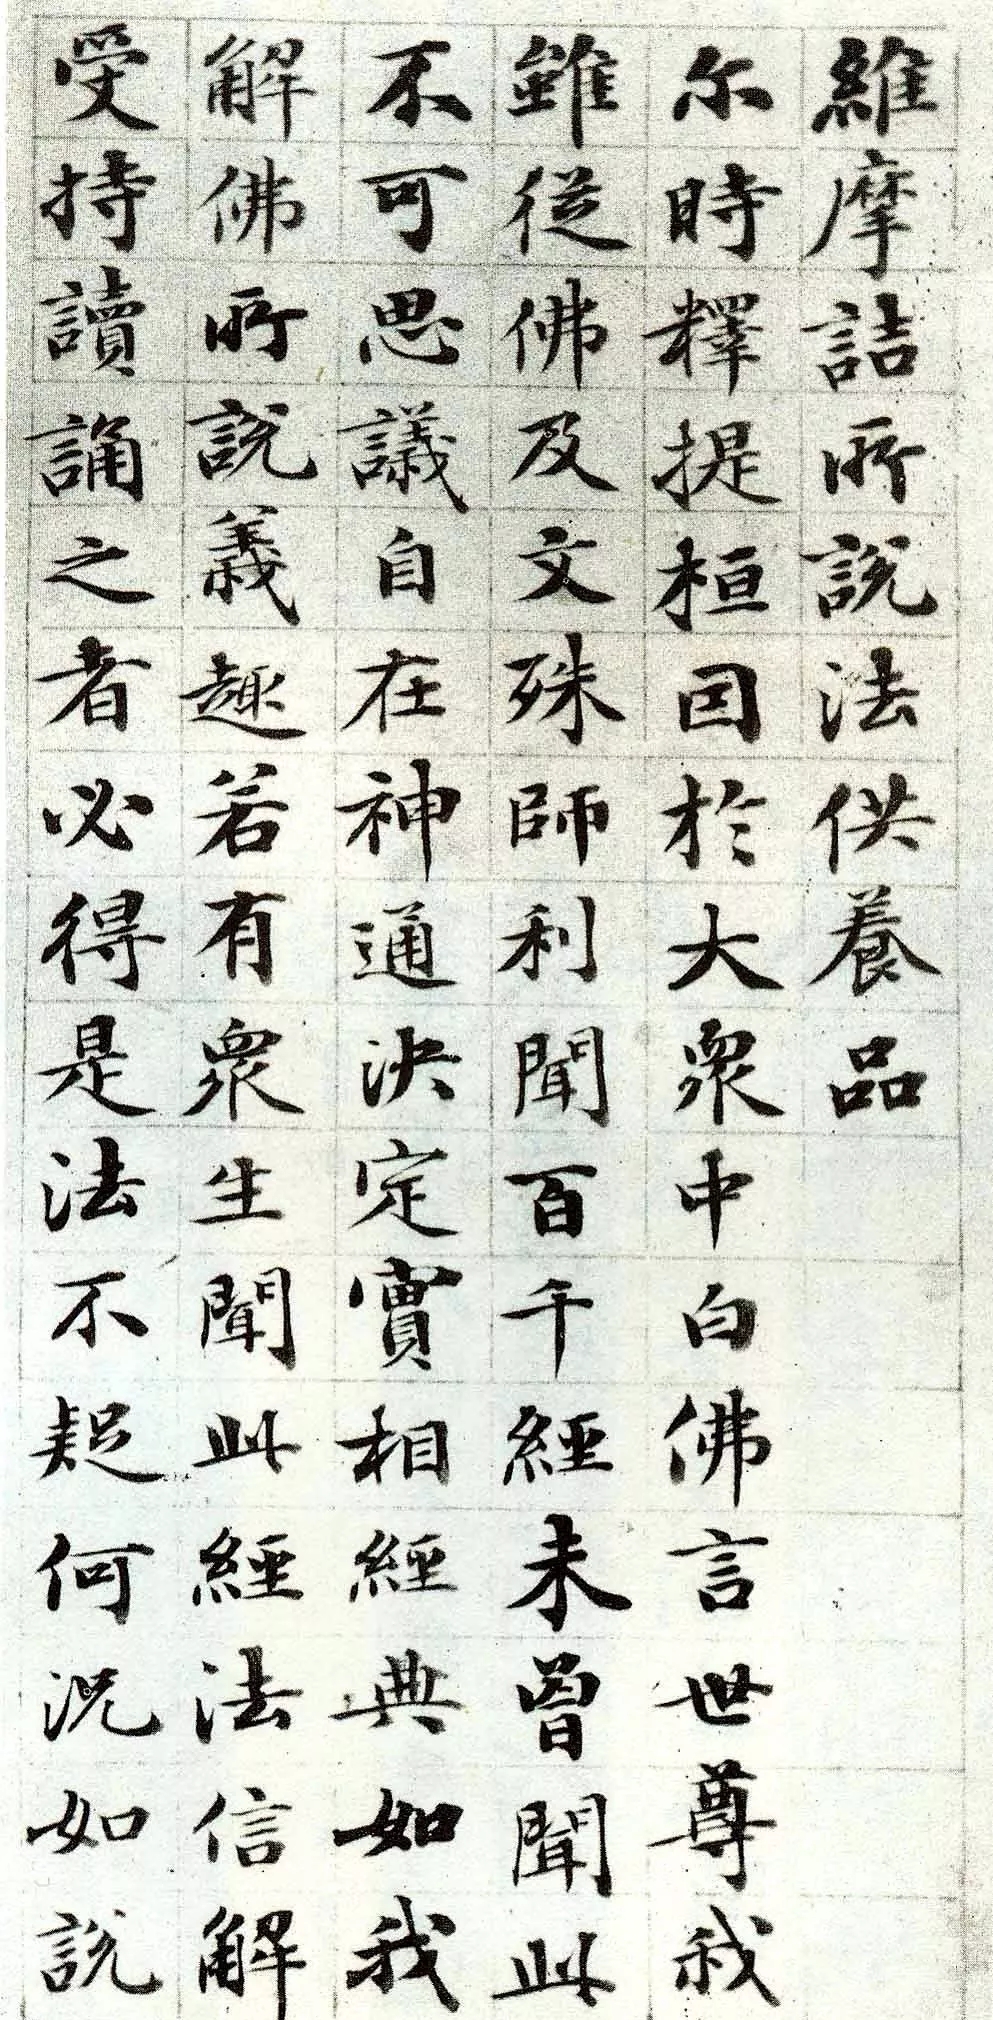 維摩詰所說法供養品
尒時釋提桓因於大衆中白佛言世尊我
雖從佛及文殊師利聞百千經未曾聞此
不可思議自在神通決定實相經典如我
解佛所說義趣若有衆生聞此經法信解
受持讀誦之者必得是法不疑何況如說